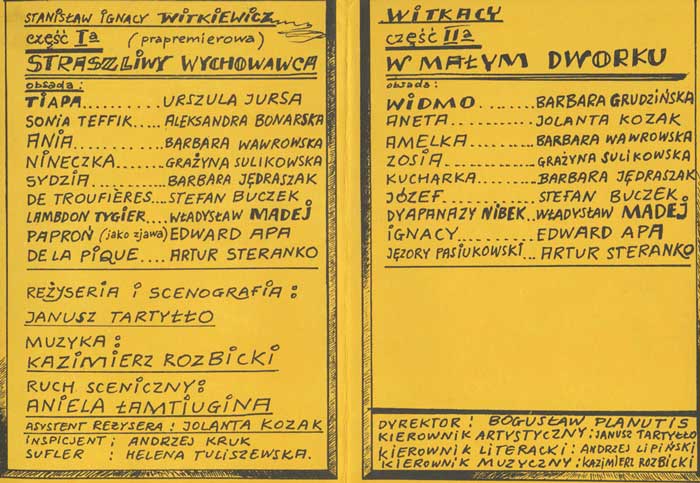 STANISŁAW IGNACY WITKIEWICZ
CZĘŚĆ Iª (prapremierowa)
STRASZLIWY WYCHOWAWCA
obsada:
TIAPA......... URSZULA JURSA
SONIA TEFFIK..... ALEKSANDRA BONARSKA
ANIA............ BARBARA WAWROWSKA
NINECZKA....... GRAŻYNA SULIKOWSKA
SYDZIA........... BARBARA JĘDRASZAK
DE TROUFIÈRES... STEFAN BUCZEK
LAMBDON TYGIER.. WŁADYSŁAW MADEJ
PAPROŃ (jako zjawa) EDWARD APA
DE LA PIQUE.... ARTUR STERANKO
REŻYSERIA i SCENOGRAFIA:
JANUSZ TARTYŁŁO
MUZYKA:
KAZIMIERZ ROZBICKI
RUCH SCENICZNY:
ANIELA ŁAMTIUGINA
ASYSTENT REŻYSERA: JOLANTA KOZAK
INSPICJENT: ANDRZEJ KRUK
SUFLER : HELENA TULISZEWSKA.
WITKACY
CZĘŚĆ IIª
W MAŁYM DWORKU
obsada:
WIDMO........ BARBARA GRUDZIŃSKA
ANETA............ JOLANTA KOZAK
AMELKA......... BARBARA WAWROWSKA
ZOSIA........... GRAŻYNA SULIKOWSKA
KUCHARKA....... BARBARA JĘDRASZAK
JÓZEF.......... STEFAN BUCZEK
DYAPANAZY NIBEK.. WŁADYSŁAW MADEJ
IGNACY.......... EDWARD APA
JĘZORY PASIUKOWSKI... ARTUR STERANKO
DYREKTOR: BOGUSŁAW PLANUTIS
KIEROWNIK ARTYSTYCZNY: JANUSZ TARTYŁŁO
KIEROWNIK LITERACKI: ANDRZEJ LIPIŃSKI
KIEROWNIK MUZYCZNY: KAZIMIERZ ROZBICKI